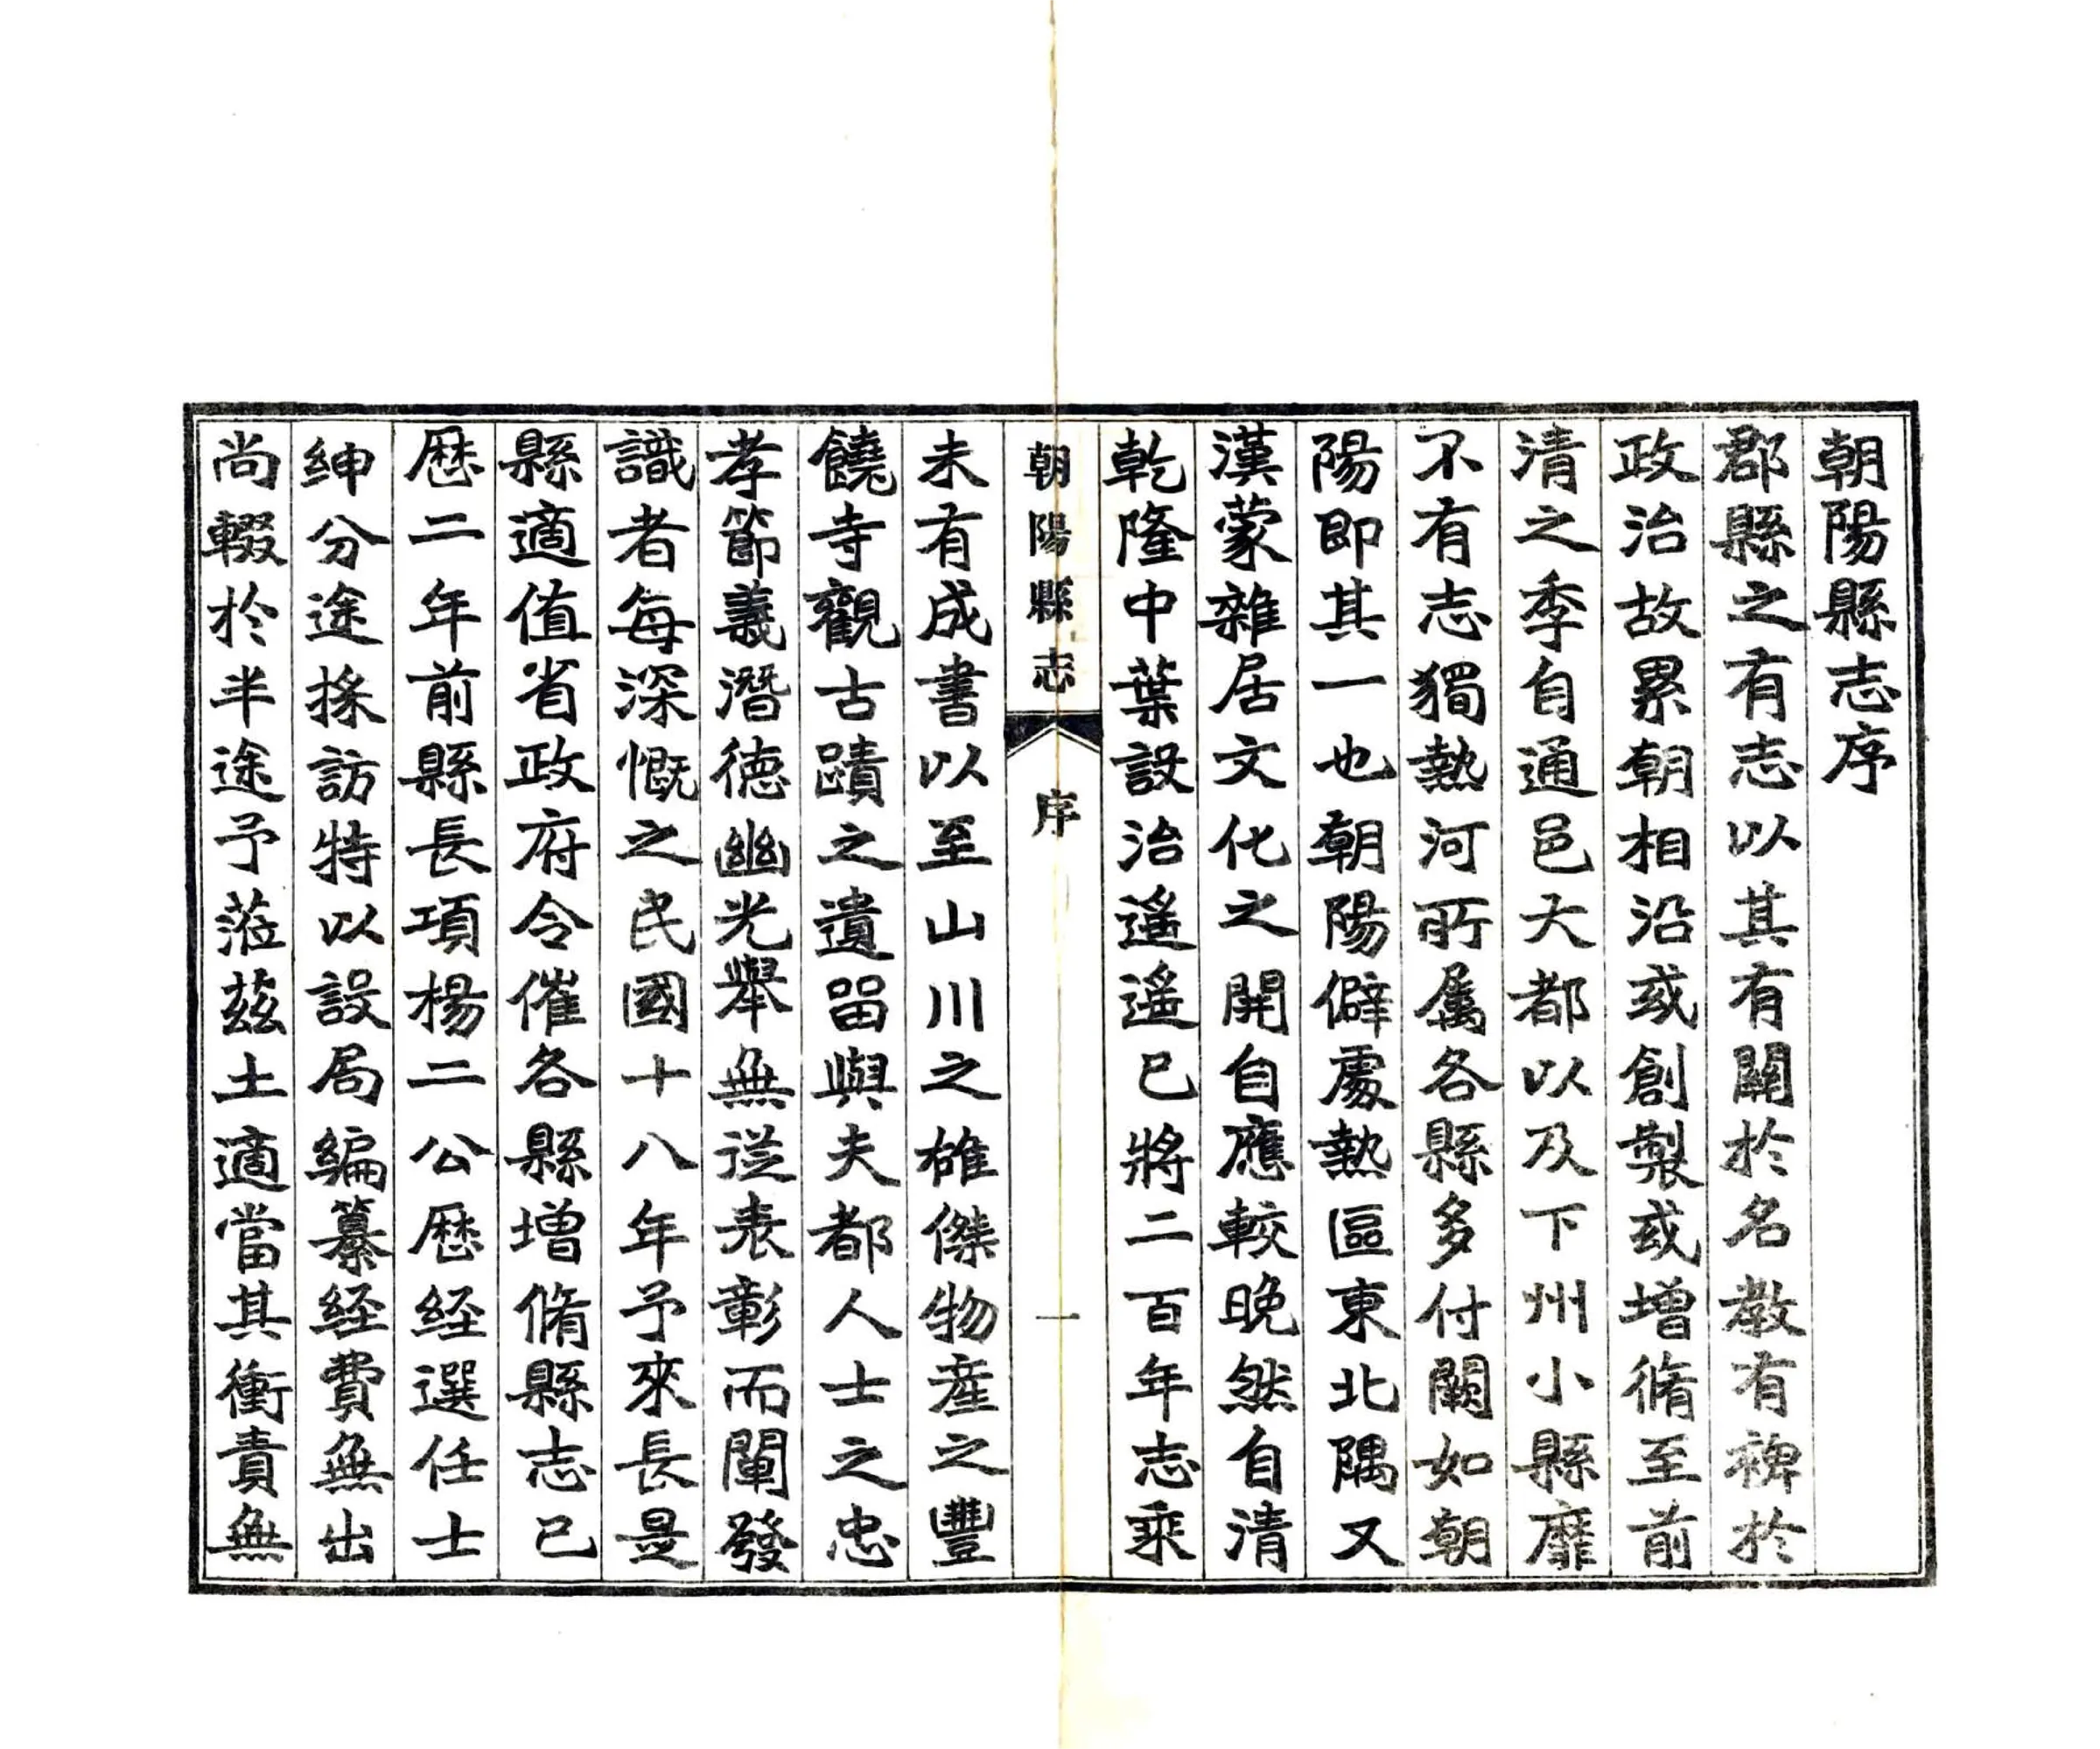 朝陽縣志序
郡縣之有志以其有關於名教有裨於
政治故累朝相沿或創製或增脩至前
清之季自通邑大都以及下州小縣靡
不有志獨熱河所属各縣多付闕如朝
陽即其一也朝陽僻處熱區東北隅又
漢蒙雜居文化之開自應較晚然自清
乾隆中葉設治遙遙已將二百年志乘
朝陽縣志
序
一
未有成書以至山川之雄傑物產之豐
饒寺觀古蹟之遺留與夫都人士之忠
孝節義潛德幽光舉無從表彰而闡發
識者每深慨之民國十八年予來長是
縣適值省政府令催各縣增脩縣志已
歷二年前縣長項楊二公歷経選任士
紳分途採訪特以設局編纂経費無出
尚輟於半途予蒞茲土適當其衝責無